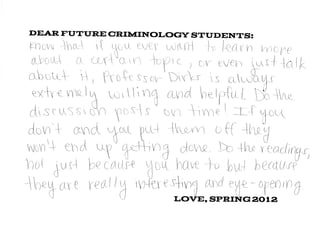 DEAR FUTURE CRIMINOLOGY STUDENTS:
Know that if you ever want to learn more
about a certain topic, or even just talk
about it, Professor Dirks is always
extremely willing and helpful. Do the
discussion posts on time! If you
don't and you put them off they
won't end up getting done. Do the readings,
not just because you have to but because
they are really interesting and eye-opening
LOVE, SPRING 2012